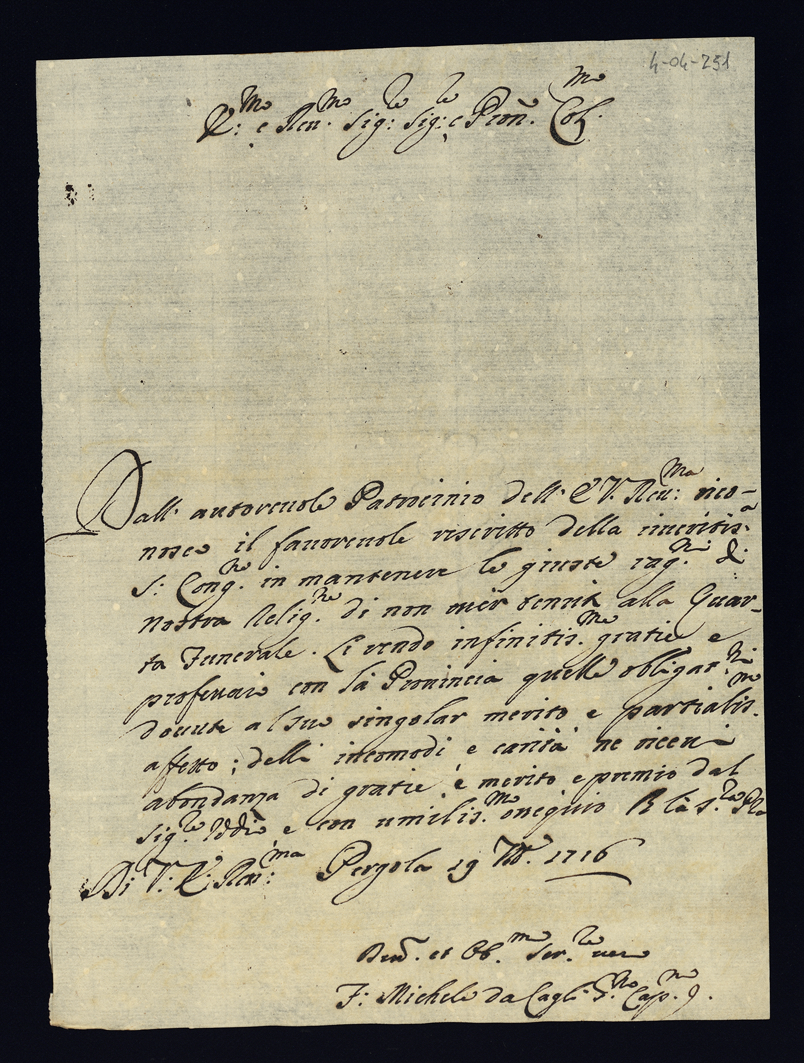 4-04-251
E:mo e Reu.mo Sig:re Sig:re e Pron. Col.mo
Dall' autoreuole Patrocinio dell' E.V. Reu:ma rico-
nosco il fauoreuole riscritto della
S: Cong.ne in mantenere le giuste rag.ni di
nostra Relig.ne di non alla Quar-
ta Funerale. Le rendo infinitis.me gratie e
professarò con la Prouincia quelle obligat.ni
douute al suo singolar merito e partialis.mo
affetto; delli incomodi e carità ne riceui
abondanza di gratie, e merito e premio dal
Sig.re Iddio e con umilis.mo ossequio
Di V: E: Reu:ma Pergola 19 1716
et Ob.mo Ser.re uero
F: Michele da Cagli Cap.no